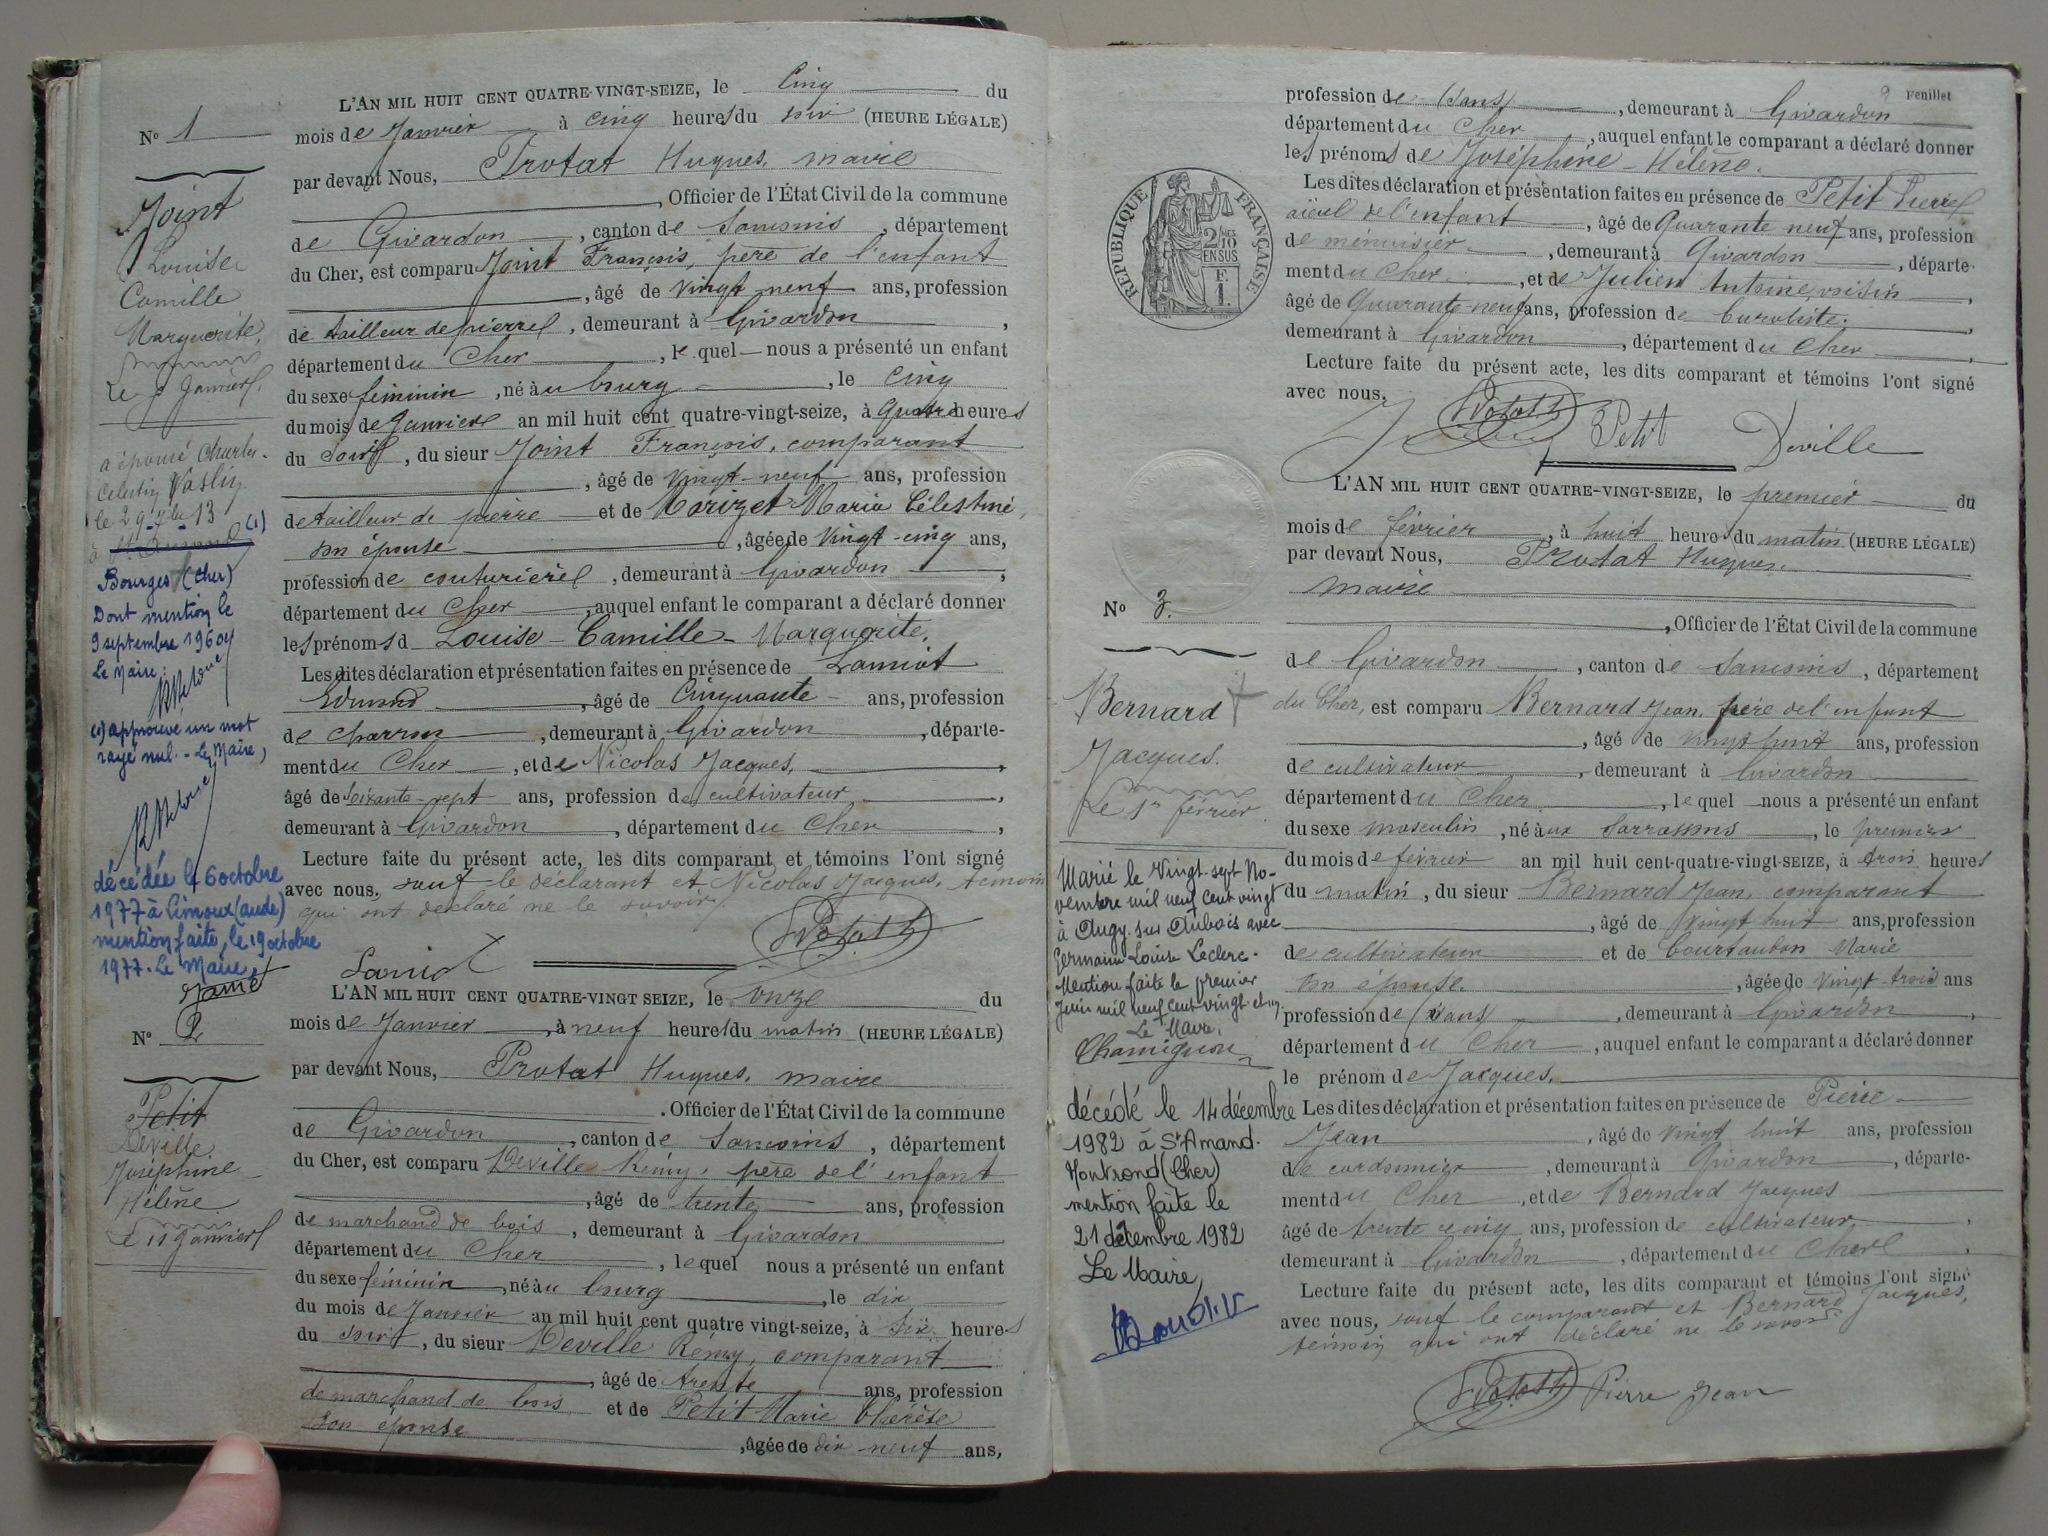 N° 1
Joint
Louise
Camille
Marguerite,
Le 5 Janvier.
a épousé Charles
Celestin Vaslin
le 29 7bre 13 (1)
à St Amand
Bourges (Cher)
Dont mention le
9 septembre 1960
Le Maire :
(1) approuvé un mot
rayé nul. - Le Maire,
décédée le 6 octobre
1977 à Limoux (aude)
mention faite, le 19 octobre
1977. Le Maire,
L'AN MIL HUIT CENT QUATRE-VINGT-SEIZE, le Cinq du
mois de Janvier à cinq heures du soir (HEURE LÉGALE)
par devant Nous, Protat Hugues, maire
, Officier de l'État Civil de la commune
de Givardon, canton de Sancoins, département
du Cher, est comparu Joint François, père de l'enfant
, âgé de vingt neuf ans, profession
de tailleur de pierres, demeurant à Givardon,
département du Cher, le quel nous a présenté un enfant
du sexe féminin, né au bourg, le cinq
du mois de Janvier an mil huit cent quatre-vingt-seize, à quatre heures
du soir, du sieur Joint François, comparant
, âgé de vingt-neuf ans, profession
de tailleur de pierre et de Morizet Maria Célestine,
son épouse, âgée de vingt-cinq ans,
profession de couturière, demeurant à Givardon,
département du Cher, auquel enfant le comparant a déclaré donner
les prénoms d Louise - Camille - Marguerite.
Les dites déclaration et présentation faites en présence de Lamiot
Edmond, âgé de Cinquante ans, profession
de charron, demeurant à Givardon, départe-
ment du Cher, et de Nicolas Jacques,
âgé de soixante-sept ans, profession de cultivateur,
demeurant à Givardon, département du Cher,
Lecture faite du présent acte, les dits comparant et témoins l'ont signé
avec nous, sauf le déclarant et Nicolas Jacques, témoin
qui ont déclaré ne le savoir
Lamiot
N° 2
Petit
Deville
Joséphine
Hélène
Le 11 Janvier
L'AN MIL HUIT CENT QUATRE-VINGT SEIZE, le onze du
mois de Janvier, à neuf heures du matin (HEURE LÉGALE)
par devant Nous, Protat Hugues, maire
. Officier de l'État Civil de la commune
de Givardon, canton de Sancoins, département
du Cher, est comparu Deville Rémy, père de l'enfant
, âgé de trente ans, profession
de marchand de bois, demeurant à Givardon
département du Cher, le quel nous a présenté un enfant
du sexe féminin, né au bourg, le dix
du mois de Janvier an mil huit cent quatre vingt-seize, à six heures
du soir, du sieur Deville Rémy, comparant
, âgé de trente ans, profession
de marchand de bois et de Petit Marie Thérèse
son épouse, âgée de dix-neuf ans,
9 Feuillet
profession de (sans), demeurant à Givardon
département du Cher, auquel enfant le comparant a déclaré donner
les prénoms de Joséphine - Hélène.
Les dites déclaration et présentation faites en présence de Petit Pierre
aïeul de l'enfant, âgé de Quarante neuf ans, profession
de menuisier, demeurant à Givardon, départe-
ment du Cher, et de Julien Antoine, voisin,
âgé de Quarante-neuf ans, profession de buraliste,
demeurant à Givardon, département du Cher,
Lecture faite du présent acte, les dits comparant et témoins l'ont signé
avec nous,
Petit Deville
RÉPUBLIQUE FRANÇAISE
2/10 EN SUS
1 F.
N° 3.
Bernard
Jacques.
Le 1er février
Marié le Vingt-sept No-
vembre mil neuf cent vingt
à Augy sur Aubois avec
Germaine Louise Leclerc.
Mention faite le premier
Juin mil neuf cent vingt et un.
Le Maire,
décédé le 14 décembre
1982 à St Amand.
Montrond (Cher)
mention faite le
21 décembre 1982
Le Maire,
L'AN MIL HUIT CENT QUATRE-VINGT-SEIZE, le premier du
mois de février, à huit heures du matin (HEURE LÉGALE)
par devant Nous, Protat Hugues,
maire
, Officier de l'État Civil de la commune
de Givardon, canton de Sancoins, département
du Cher, est comparu Bernard Jean, père de l'enfant
, âgé de vingt huit ans, profession
de cultivateur, demeurant à Givardon
département du Cher, le quel nous a présenté un enfant
du sexe masculin, né aux Sarrassins, le premier
du mois de février an mil huit cent-quatre-vingt-SEIZE, à trois heures
du matin, du sieur Bernard Jean, comparant
, âgé de vingt huit ans, profession
de cultivateur et de Marie
son épouse, âgée de vingt-trois ans
profession de (sans), demeurant à Givardon,
département du Cher, auquel enfant le comparant a déclaré donner
le prénom de Jacques.
Les dites déclaration et présentation faites en présence de Pierre
Jean, âgé de vingt huit ans, profession
de cordonnier, demeurant à Givardon, départe-
ment du Cher, et de Bernard Jacques
âgé de trente cinq ans, profession de cultivateur,
demeurant à Givardon, département du Cher,
Lecture faite du présent acte, les dits comparant et témoins l'ont signé
avec nous, sauf le comparant et Bernard Jacques,
témoin qui ont déclaré ne le savoir
Pierre Jean